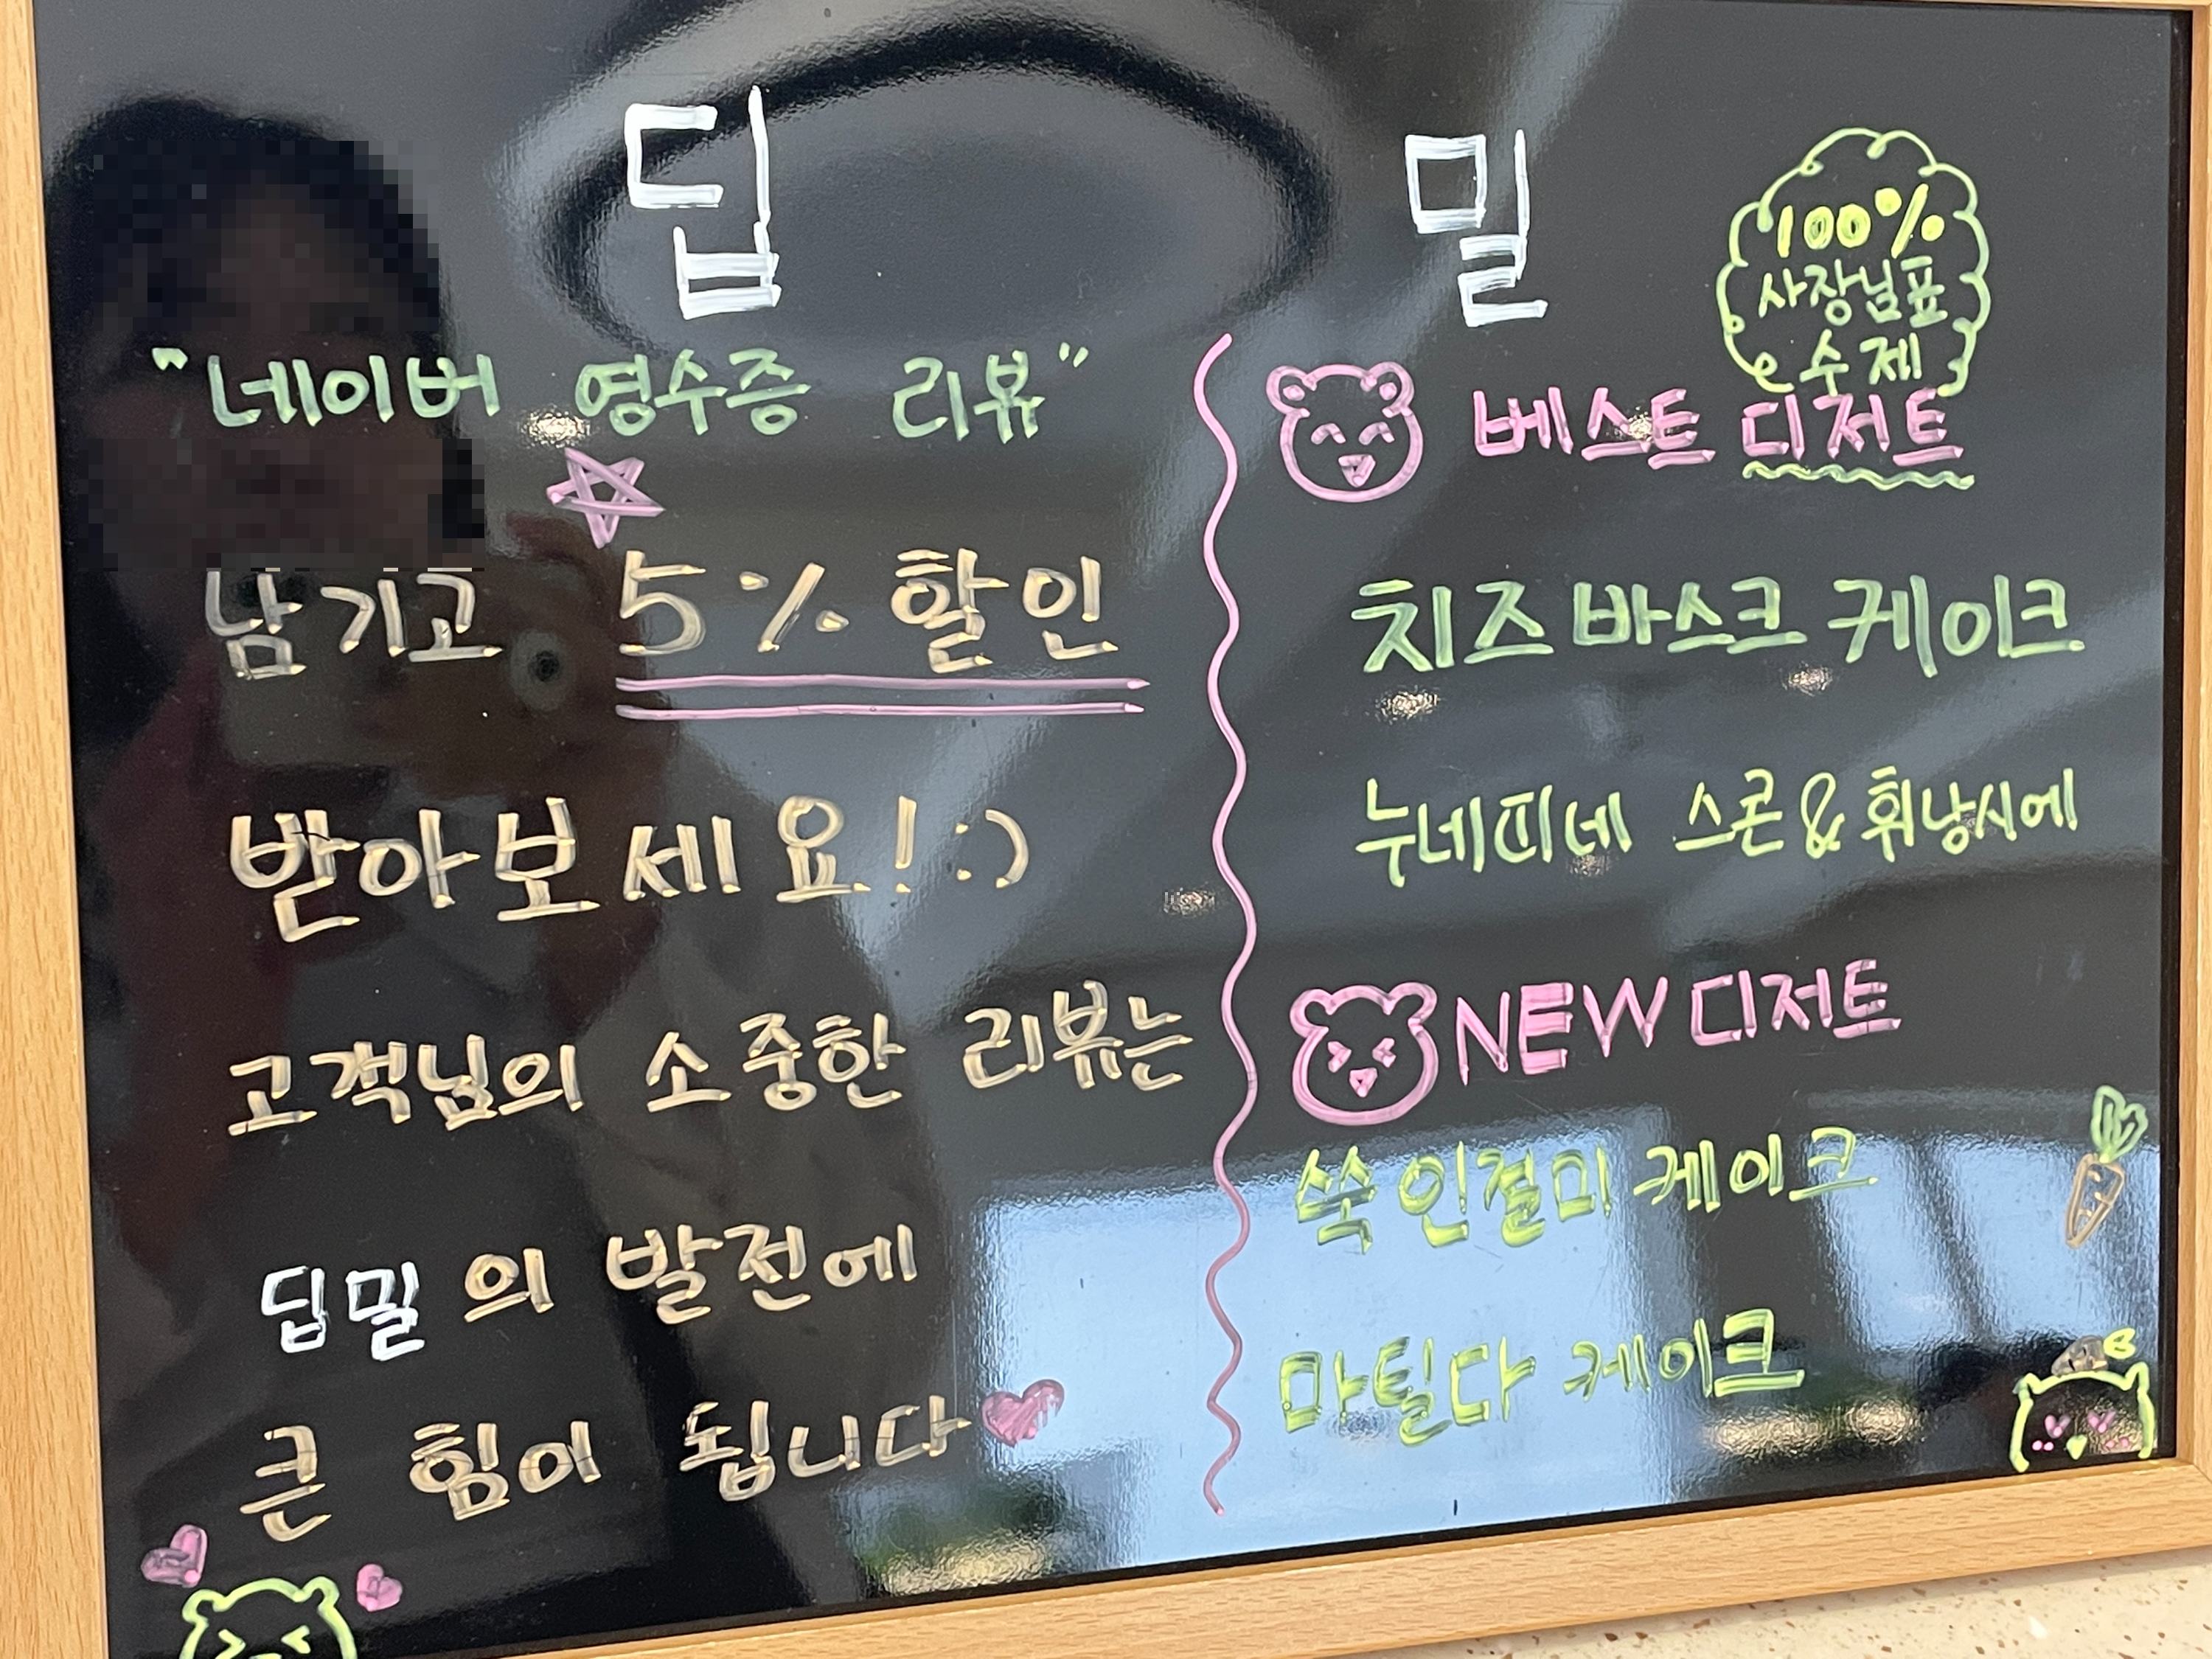 딥 밀
"네이버 영수증 리뷰"
남기고 5% 할인
받아보세요! :)
고객님의 소중한 리뷰는
딥밀의 발전에
큰 힘이 됩니다
100%
사장님표
수제
베스트 디저트
치즈 바스크 케이크
누네띠네 스콘 & 휘낭시에
NEW 디저트
쑥 인절미 케이크
마틸다 케이크